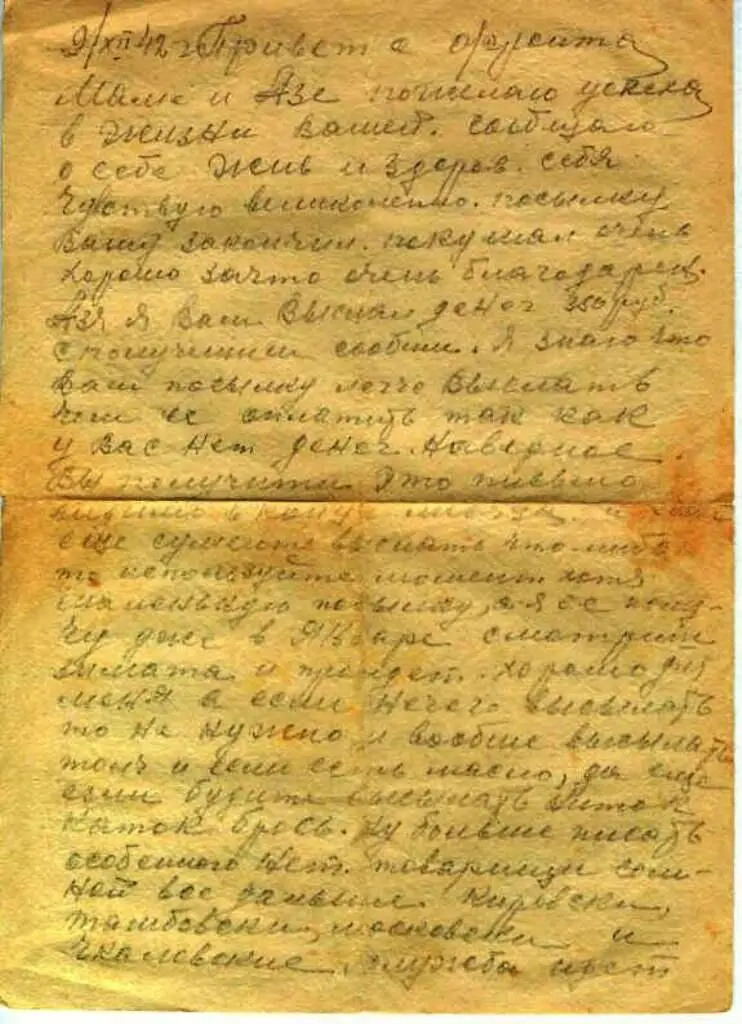 9/XII 42 г Привет с фронта
Маме и Язе пожелаю успеха
в жизни вашей. сообщаю
о себе жив и здоров. себя
чувствую великолепно. посылку
вашу закончил. покушал очень
хорошо зачто очень благодарен.
Язя я вам выслал денег 350 руб.
с получением сообщи. Я знаю что
вам посылку легче выслать
чем ее оплатить так как
у вас нет денег. наверное
вы получите это письмо
еще сумеете выслать что либо
то используйте момент хотя
маленькую посылку, а я ее полу-
чу уже в Январе смотриш
зимата и пройдет. хорошо для
меня а если нечего высылать
то не нужно и вообще высылать
если есть масло, да еще
если будите высылать
каток брось. Ну больше писать
особенного нет. товарищи сом-
ной все Кировски,
тамбовски, московски и
Чкаловские, служба идет